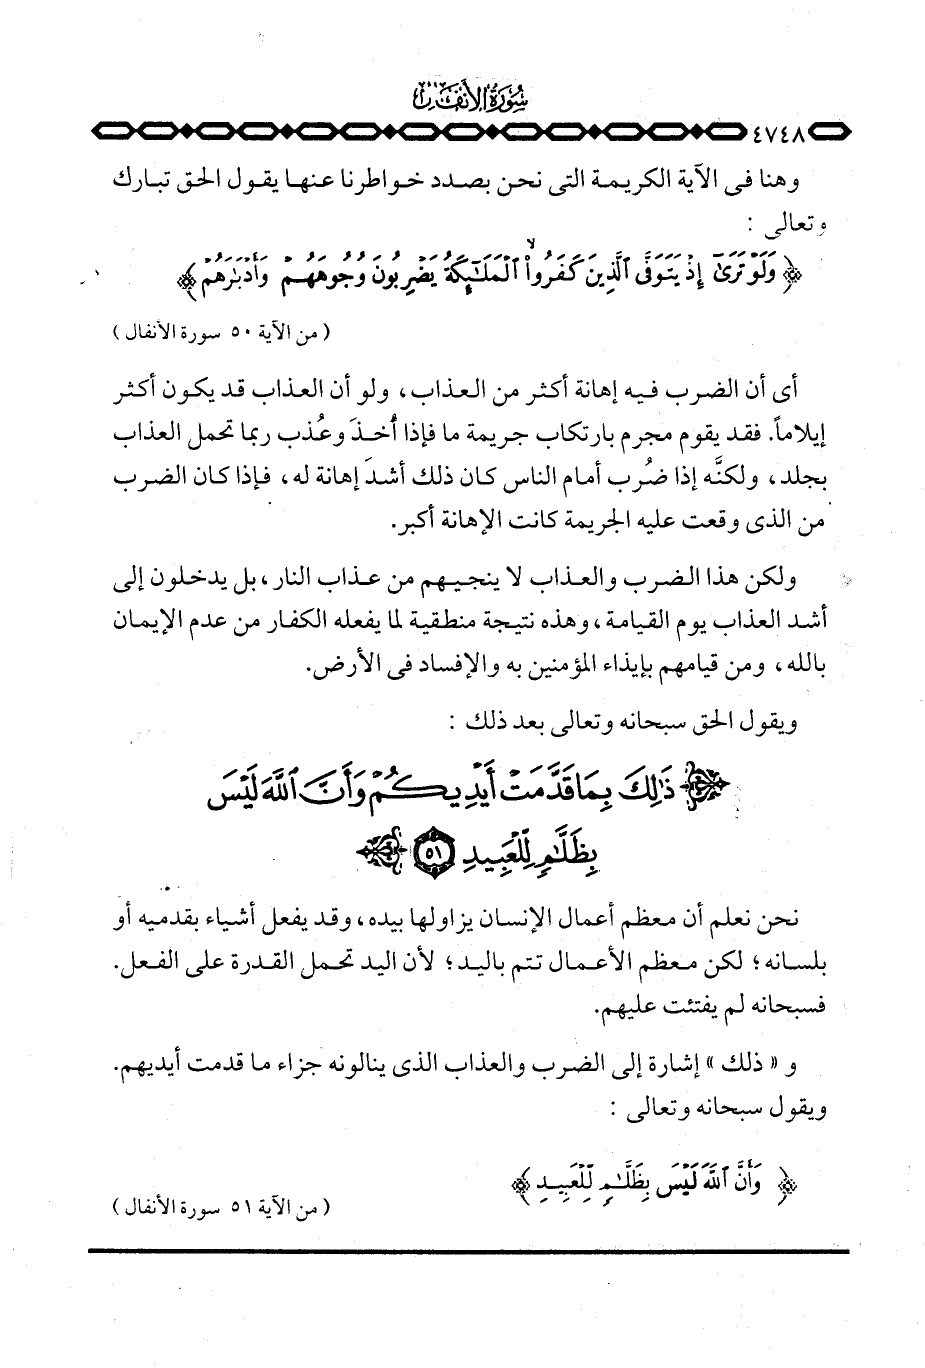 سورة الأنفال
٤٧٤٨
وهنا فى الآية الكريمة التى نحن بصدد خواطرنا عنها يقول الحق تبارك
وتعالى :
﴿ وَلَوْ تَرَىٰٓ إِذْ يَتَوَفَّى ٱلَّذِينَ كَفَرُوا۟ ۙ ٱلْمَلَـٰٓئِكَةُ يَضْرِبُونَ وُجُوهَهُمْ وَأَدْبَـٰرَهُمْ ﴾
( من الآية ٥٠ سورة الأنفال )
أى أن الضرب فيه إهانة أكثر من العذاب، ولو أن العذاب قد يكون أكثر
إيلاماً. فقد يقوم مجرم بارتكاب جريمة ما فإذا أُخذَ وعُذب ربما تحمل العذاب
بجلد، ولكنَّه إذا ضُرب أمام الناس كان ذلك أشدَ إهانة له، فإذا كان الضرب
من الذى وقعت عليه الجريمة كانت الإهانة أكبر.
ولكن هذا الضرب والعذاب لا ينجيهم من عذاب النار، بل يدخلون إلى
أشد العذاب يوم القيامة، وهذه نتيجة منطقية لما يفعله الكفار من عدم الإيمان
بالله، ومن قيامهم بإيذاء المؤمنين به والإفساد فى الأرض.
ويقول الحق سبحانه وتعالى بعد ذلك :
ذَٰلِكَ بِمَا قَدَّمَتْ أَيْدِيكُمْ وَأَنَّ ٱللَّهَ لَيْسَ
بِظَلَّـٰمٍ لِّلْعَبِيدِ ٥١
نحن نعلم أن معظم أعمال الإنسان يزاولها بيده، وقد يفعل أشياء بقدميه أو
بلسانه؛ لكن معظم الأعمال تتم باليد؛ لأن اليد تحمل القدرة على الفعل.
فسبحانه لم يفتئت عليهم.
و « ذلك » إشارة إلى الضرب والعذاب الذى ينالونه جزاء ما قدمت أيديهم.
ويقول سبحانه وتعالى :
﴿ وَأَنَّ ٱللَّهَ لَيْسَ بِظَلَّـٰمٍ لِّلْعَبِيدِ ﴾
( من الآية ٥١ سورة الأنفال )